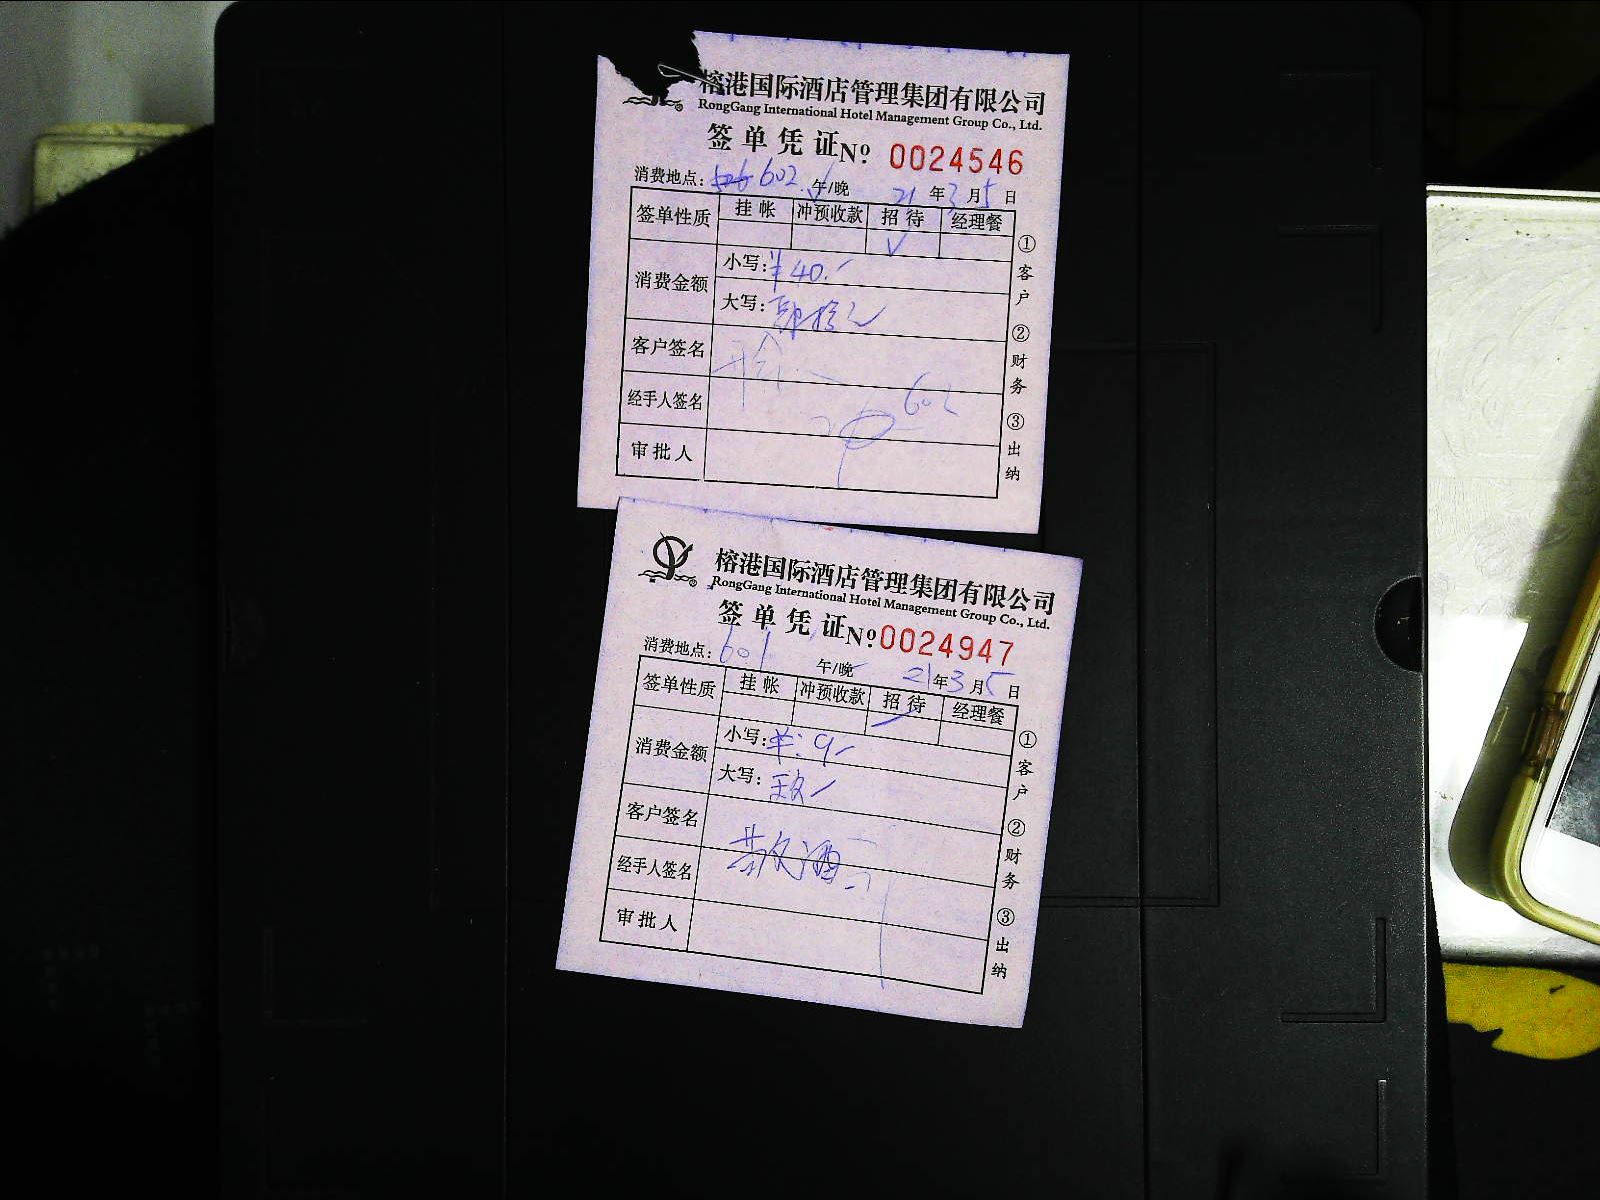 榕港国际酒店管理集团有限公司
RongGang International Hotel Management Group Co., Ltd.
签单凭证 Nº 0024546
消费地点: 602 午/晚 21年3月5日
签单性质 挂帐 冲预收款 招待 经理餐
√
消费金额 小写: ¥40.-
大写: 肆拾元
客户签名
经手人签名 602
审批人
① 客户 ② 财务 ③ 出纳
榕港国际酒店管理集团有限公司
RongGang International Hotel Management Group Co., Ltd.
签单凭证 Nº 0024947
消费地点: 601 午/晚 21年3月5日
签单性质 挂帐 冲预收款 招待 经理餐
消费金额 小写: ¥: 9-
大写: 玖
客户签名
散酒
经手人签名
审批人
① 客户 ② 财务 ③ 出纳